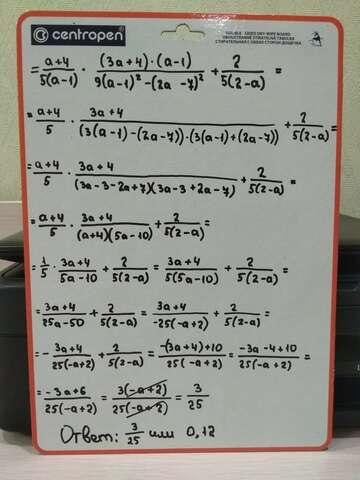 centropen
DOUBLE - SIDED DRY-WIPE BOARD
OBOUSTRANNĚ STÍRATELNÁ TABULKA
СТИРАТЕЛЬНАЯ С ОБЕИХ СТОРОН ДОЩЕЧКА
= (a+4)/(5(a-1)) · ((3a+4)·(a-1))/(9(a-1)² - (2a-7)²) + 2/(5(2-a)) =
= (a+4)/5 · (3a+4)/((3(a-1)-(2a-7))·(3(a-1)+(2a-7))) + 2/(5(2-a)) =
= (a+4)/5 · (3a+4)/((3a-3-2a+7)(3a-3+2a-7)) + 2/(5(2-a)) =
= (a+4)/5 · (3a+4)/((a+4)(5a-10)) + 2/(5(2-a)) =
= 1/5 · (3a+4)/(5a-10) + 2/(5(2-a)) = (3a+4)/(5(5a-10)) + 2/(5(2-a)) =
= (3a+4)/(25a-50) + 2/(5(2-a)) = (3a+4)/(-25(-a+2)) + 2/(5(2-a)) =
= - (3a+4)/(25(-a+2)) + 2/(5(2-a)) = (-(3a+4)+10)/(25(-a+2)) = (-3a-4+10)/(25(-a+2)) =
= (-3a+6)/(25(-a+2)) = (3(-a+2))/(25(-a+2)) = 3/25
Ответ: 3/25 или 0,12